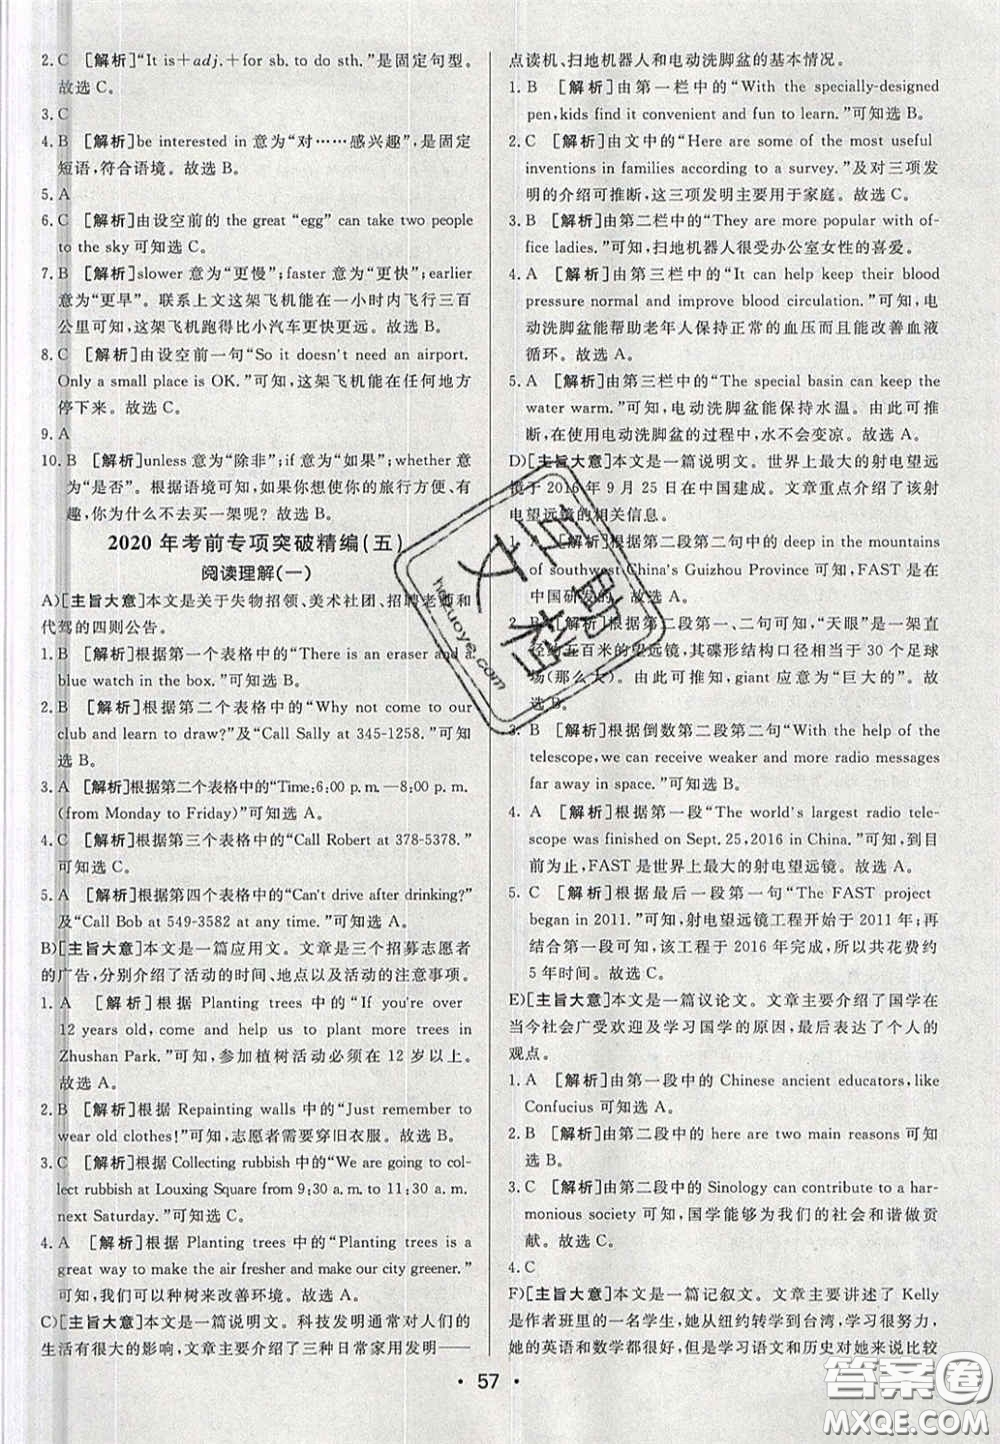 2. C [解析]“It is+adj.+for sb. to do sth.”是固定句型。
故选 C。
3. C
4. B [解析]be interested in 意为“对……感兴趣”,是固定
短语,符合语境。故选 B。
5. A
6. C [解析]由设空前的 the great “egg” can take two people
to the sky 可知选 C。
7. B [解析]slower 意为“更慢”;faster 意为“更快”;earlier
意为“更早”。联系上文这架飞机能在一小时内飞行三百
公里可知,这架飞机跑得比小汽车更快更远。故选 B。
8. C [解析]由设空前一句“So it doesn't need an airport.
Only a small place is OK.”可知,这架飞机能在任何地方
停下来。故选 C。
9. A
10. B [解析]unless 意为“除非”;if 意为“如果”;whether 意
为“是否”。根据语境可知,如果你想使你的旅行方便、有
趣,你为什么不去买一架呢?故选 B。
2020 年考前专项突破精编(五)
阅读理解(一)
A)[主旨大意]本文是关于失物招领、美术社团、招聘老师和
代驾的四则公告。
1. B [解析]根据第一个表格中的“There is an eraser and a
blue watch in the box.”可知选 B。
2. B [解析]根据第二个表格中的“Why not come to our
club and learn to draw?”及“Call Sally at 345-1258.”可知
选 B。
3. A [解析]根据第二个表格中的“Time:6:00 p. m.—8:00 p. m.
(from Monday to Friday)”可知选 A。
4. C [解析]根据第三个表格中的“Call Robert at 378-5378.”
可知选 C。
5. A [解析]根据第四个表格中的“Can't drive after drinking?”
及“Call Bob at 549-3582 at any time.”可知选 A。
B)[主旨大意]本文是一篇应用文。文章是三个招募志愿者
的广告,分别介绍了活动的时间、地点以及活动的注意事项。
1. A [解析]根据 Planting trees 中的“If you're over
12 years old, come and help us to plant more trees in
Zhushan Park.”可知,参加植树活动应在 12 岁以上。
故选 A。
2. B [解析]根据 Repainting walls 中的“Just remember to
wear old clothes!”可知,志愿者需要穿旧衣服。故选 B。
3. C [解析]根据 Collecting rubbish 中的“We are going to col-
lect rubbish at Louxing Square from 9:30 a. m. to 11:30 a. m.
next Saturday.”可知选 C。
4. A [解析]根据 Planting trees 中的“Planting trees is a
great way to make the air fresher and make our city greener.”
可知,我们可以种树来改善环境。故选 A。
C)[主旨大意]本文是一篇说明文。科技发明通常对人们的
生活有很大的影响,文章主要介绍了三种日常家用发明——
点读机、扫地机器人和电动洗脚盆的基本情况。
1. B [解析]由第一栏中的“With the specially-designed
pen,kids find it convenient and fun to learn.”可知选 B。
2. C [解析]由文中的“Here are some of the most useful
inventions in families according to a survey.”及对三项发
明的介绍可推断,这三项发明主要用于家庭。故选 C。
3. B [解析]由第二栏中的“They are more popular with of-
fice ladies.”可知,扫地机器人很受办公室女性的喜爱。
4. A [解析]由第三栏中的“It can help keep their blood
pressure normal and improve blood circulation.”可知,电
动洗脚盆能帮助老年人保持正常的血压而且能改善血液
循环。故选 A。
5. A [解析]由第三栏中的“The special basin can keep the
water warm.”可知,电动洗脚盆能保持水温。由此可推
断,在使用电动洗脚盆的过程中,水不会变凉。故选 A。
D)[主旨大意]本文是一篇说明文。世界上最大的射电望远
镜于 2016 年 9 月 25 日在中国建成。文章重点介绍了该射
电望远镜的相关信息。
1. [解析]根据第二段第二句中的 deep in the mountains
of southwest China's Guizhou Province 可知,FAST 是在
中国研发的。故选 A。
2. B [解析]根据第二段第一、二句可知,“天眼”是一架直
径约五百米的望远镜,其碟形结构口径相当于 30 个足球
场(那么大)。由此可推知,giant 应意为“巨大的”。故
选 B。
3. B [解析]根据倒数第二段第二句“With the help of the
telescope,we can receive weaker and more radio messages
far away in space.”可知选 B。
4. A [解析]根据第一段第一句“The world's largest radio tele-
scope was finished on Sept. 25, 2016 in China.”可知,到目
前为止,FAST 是世界上最大的射电望远镜。故选 A。
5. C [解析]根据最后一段第一句“The FAST project
began in 2011.”可知,射电望远镜工程开始于 2011 年;再
结合第一句可知,该工程于 2016 年完成,所以共花费约
5 年时间。故选 C。
E)[主旨大意]本文是一篇议论文。文章主要介绍了国学在
当今社会广受欢迎及学习国学的原因,最后表达了个人的
观点。
1. A [解析]由第一段中的 Chinese ancient educators, like
Confucius 可知选 A。
2. B [解析]由第二段中的 here are two main reasons 可知
选 B。
3. C [解析]由第二段中的 Sinology can contribute to a har-
monious society 可知,国学能够为我们的社会和谐做贡
献。故选 C。
4. C
F)[主旨大意]本文是一篇记叙文。文章主要讲述了 Kelly
是作者班里的一名学生,她从纽约转学到华盛顿。她努力,
她的英语和数学都很好,但是学习语文和历史对她来说比较
• 57 •
答案圈
MXQE.COM